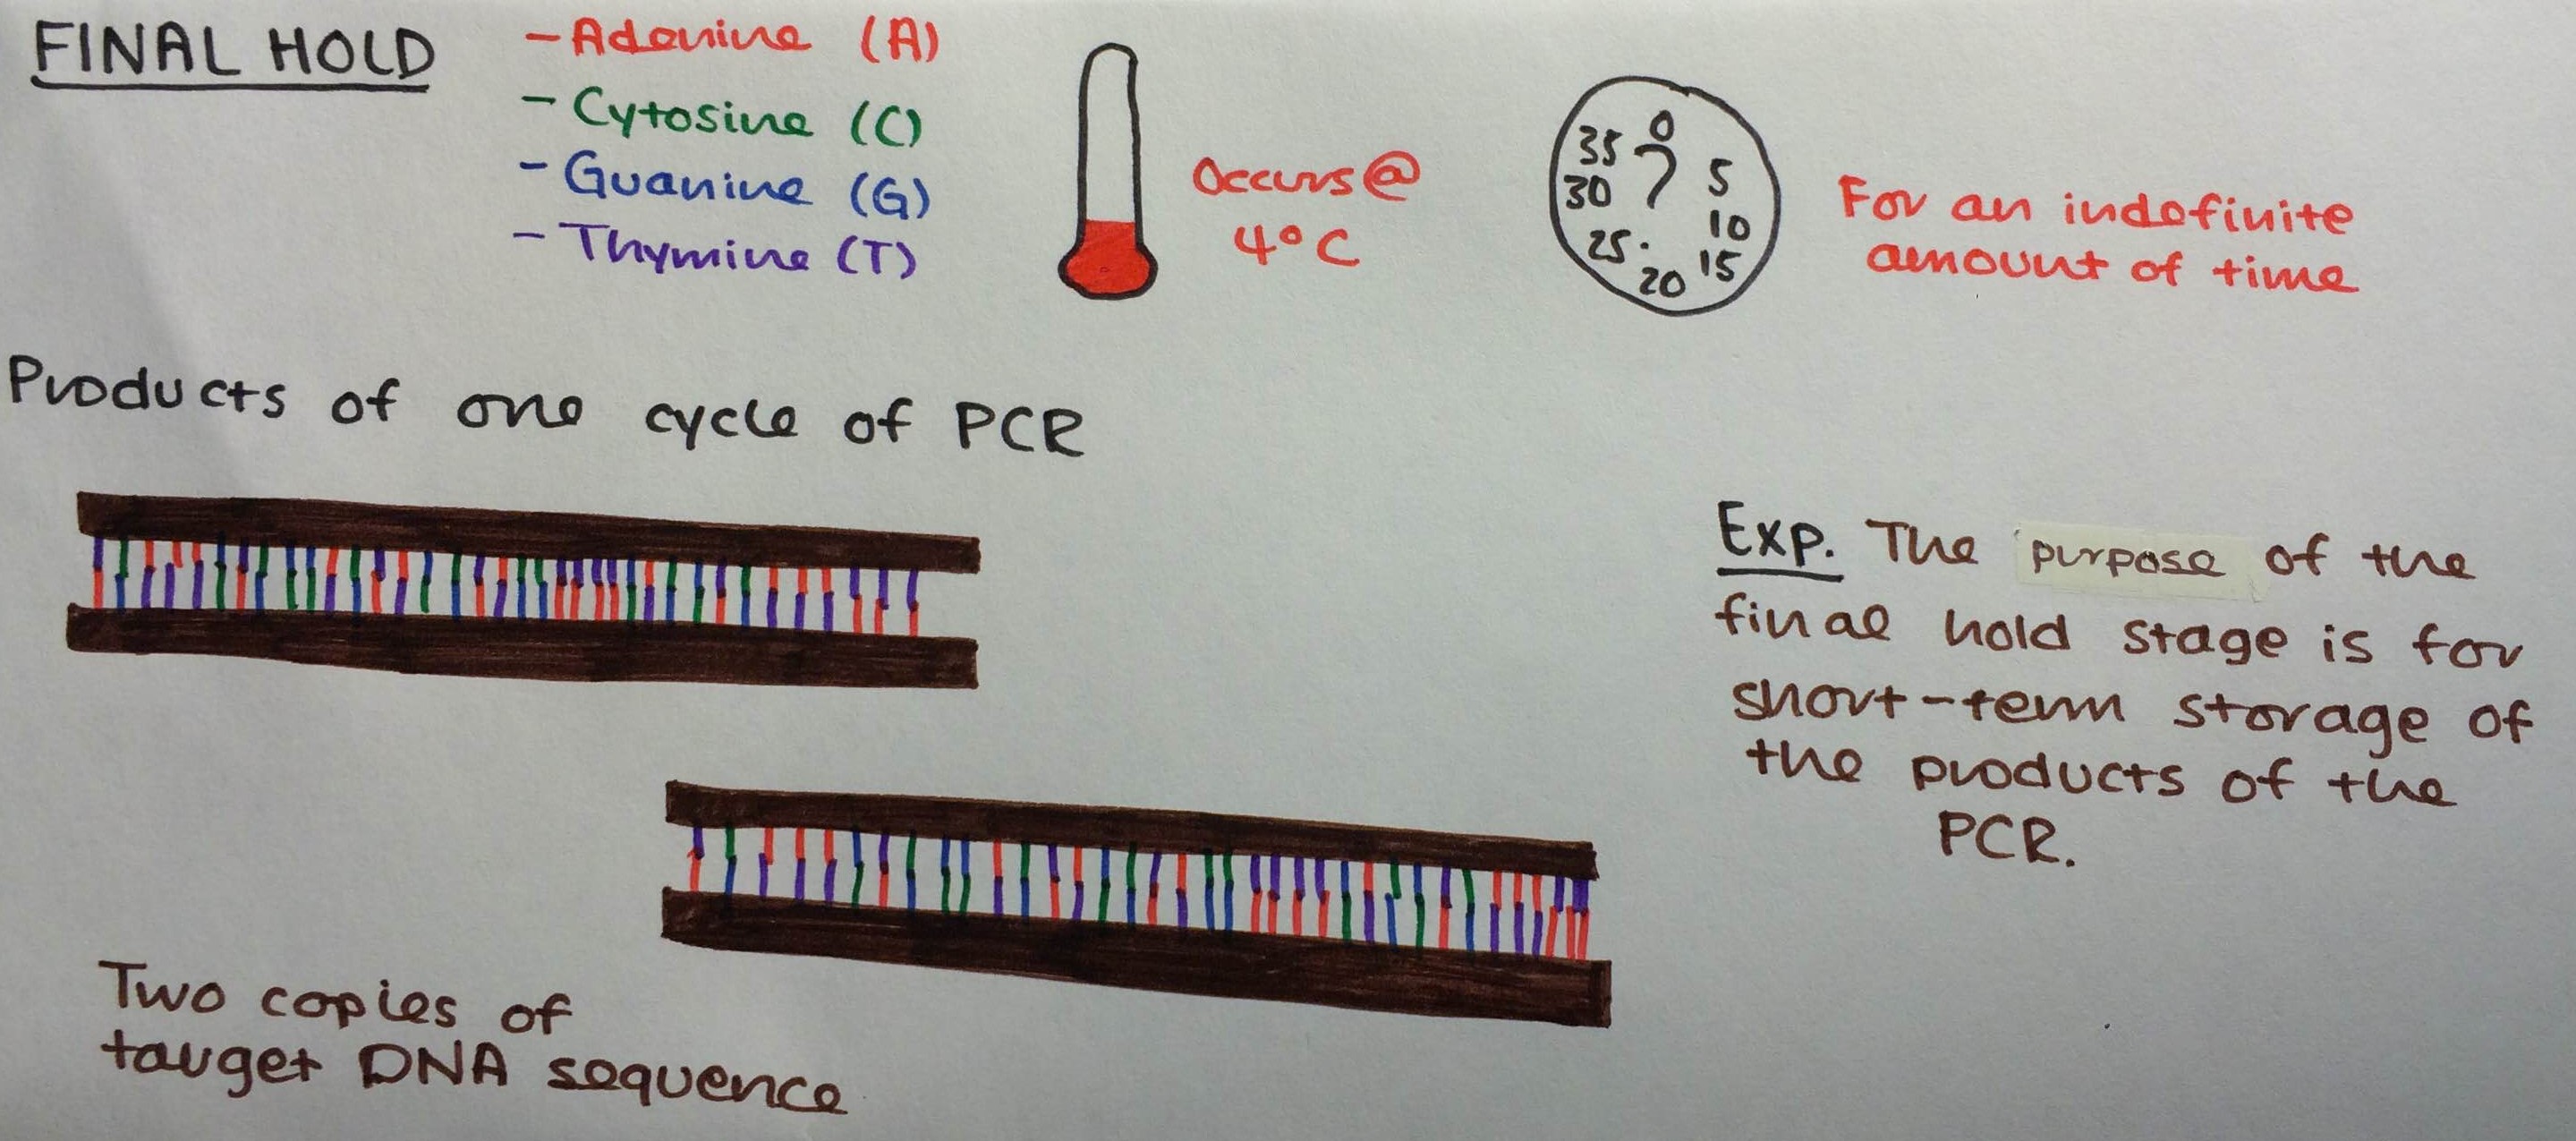 FINAL HOLD
- Adenine (A)
- Cytosine (C)
- Guanine (G)
- Thymine (T)
Occurs @
4°C
0
5
10
15
20
25.
30
35
?
For an indefinite
amount of time
Products of one cycle of PCR
Exp. The purpose of the
final hold stage is for
short-term storage of
the products of the
PCR.
Two copies of
target DNA sequence